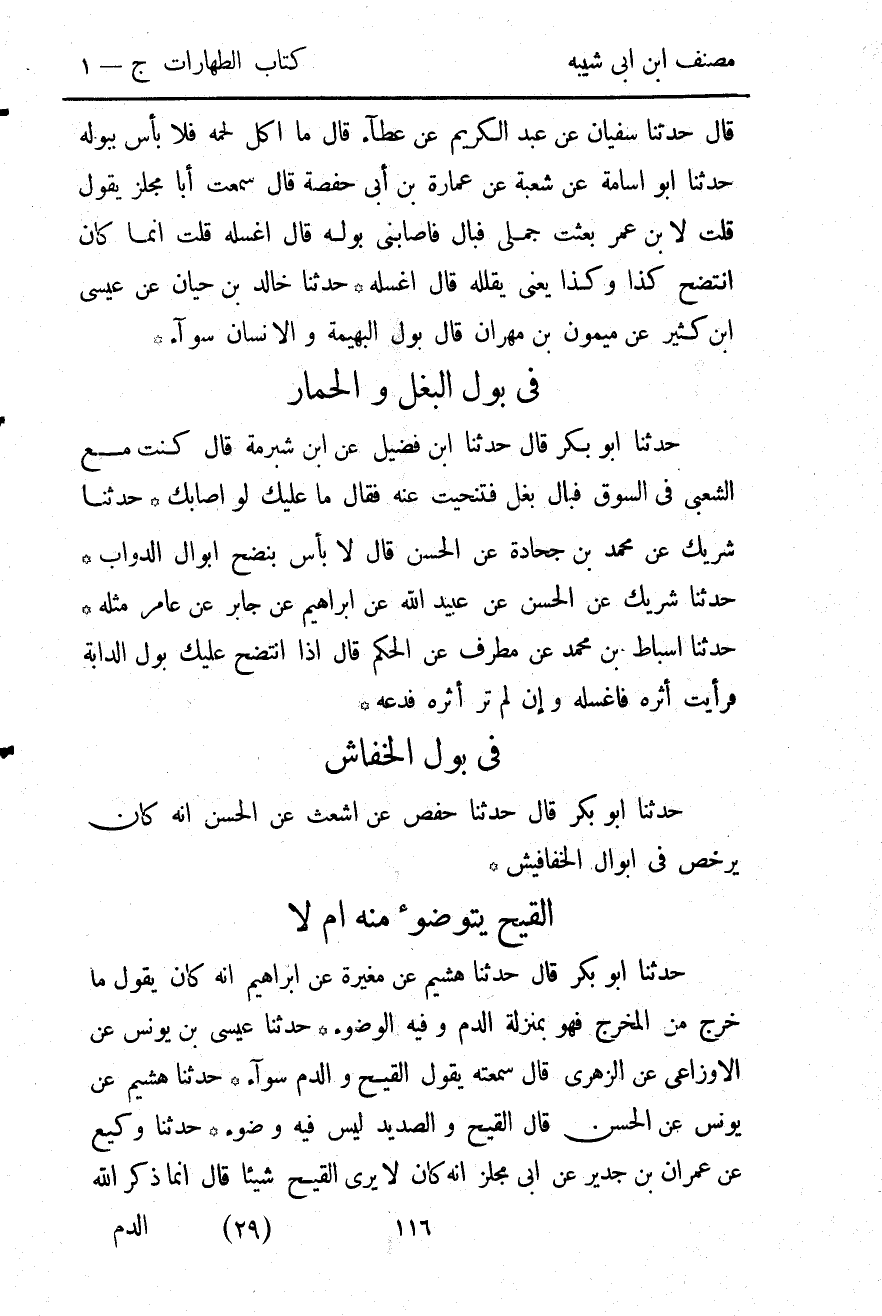 مصنف ابن ابى شيبه كتاب الطهارات ج – ١
قال حدثنا سفيان عن عبد الكريم عن عطآء قال ما اكل لحمه فلا بأس ببوله
حدثنا ابو اسامة عن شعبة عن عمارة بن أبى حفصة قال سمعت أبا مجلز يقول
قلت لا بن عمر بعثت جملى فبال فاصابنى بوله قال اغسله قلت انما كان
انتضح كذا وكذا يعنى يقلله قال اغسله * حدثنا خالد بن حيان عن عيسى
ابن كثير عن ميمون بن مهران قال بول البهيمة و الانسان سوآء *
فى بول البغل و الحمار
حدثنا ابو بكر قال حدثنا ابن فضيل عن ابن شبرمة قال كنت مع
الشعبى فى السوق فبال بغل فتنحيت عنه فقال ما عليك لو اصابك * حدثنا
شريك عن محمد بن جحادة عن الحسن قال لا بأس بنضح ابوال الدواب *
حدثنا شريك عن الحسن عن عبيد الله عن ابراهيم عن جابر عن عامر مثله *
حدثنا اسباط بن محمد عن مطرف عن الحكم قال اذا انتضح عليك بول الدابة
فرأيت أثره فاغسله و إن لم تر أثره فدعه *
فى بول الخفاش
حدثنا ابو بكر قال حدثنا حفص عن اشعث عن الحسن انه كان
يرخص فى ابوال الخفافيش *
القيح يتوضوء منه ام لا
حدثنا ابو بكر قال حدثنا هشيم عن مغيرة عن ابراهيم انه كان يقول ما
خرج من المخرج فهو بمنزلة الدم و فيه الوضوء * حدثنا عيسى بن يونس عن
الاوزاعى عن الزهرى قال سمعته يقول القيح و الدم سوآء * حدثنا هشيم عن
يونس عن الحسن قال القيح و الصديد ليس فيه و ضوء * حدثنا وكيع
عن عمران بن جدير عن ابى مجلز انه كان لا يرى القيح شيئا قال انما ذكر الله
١١٦ (٢٩) الدم